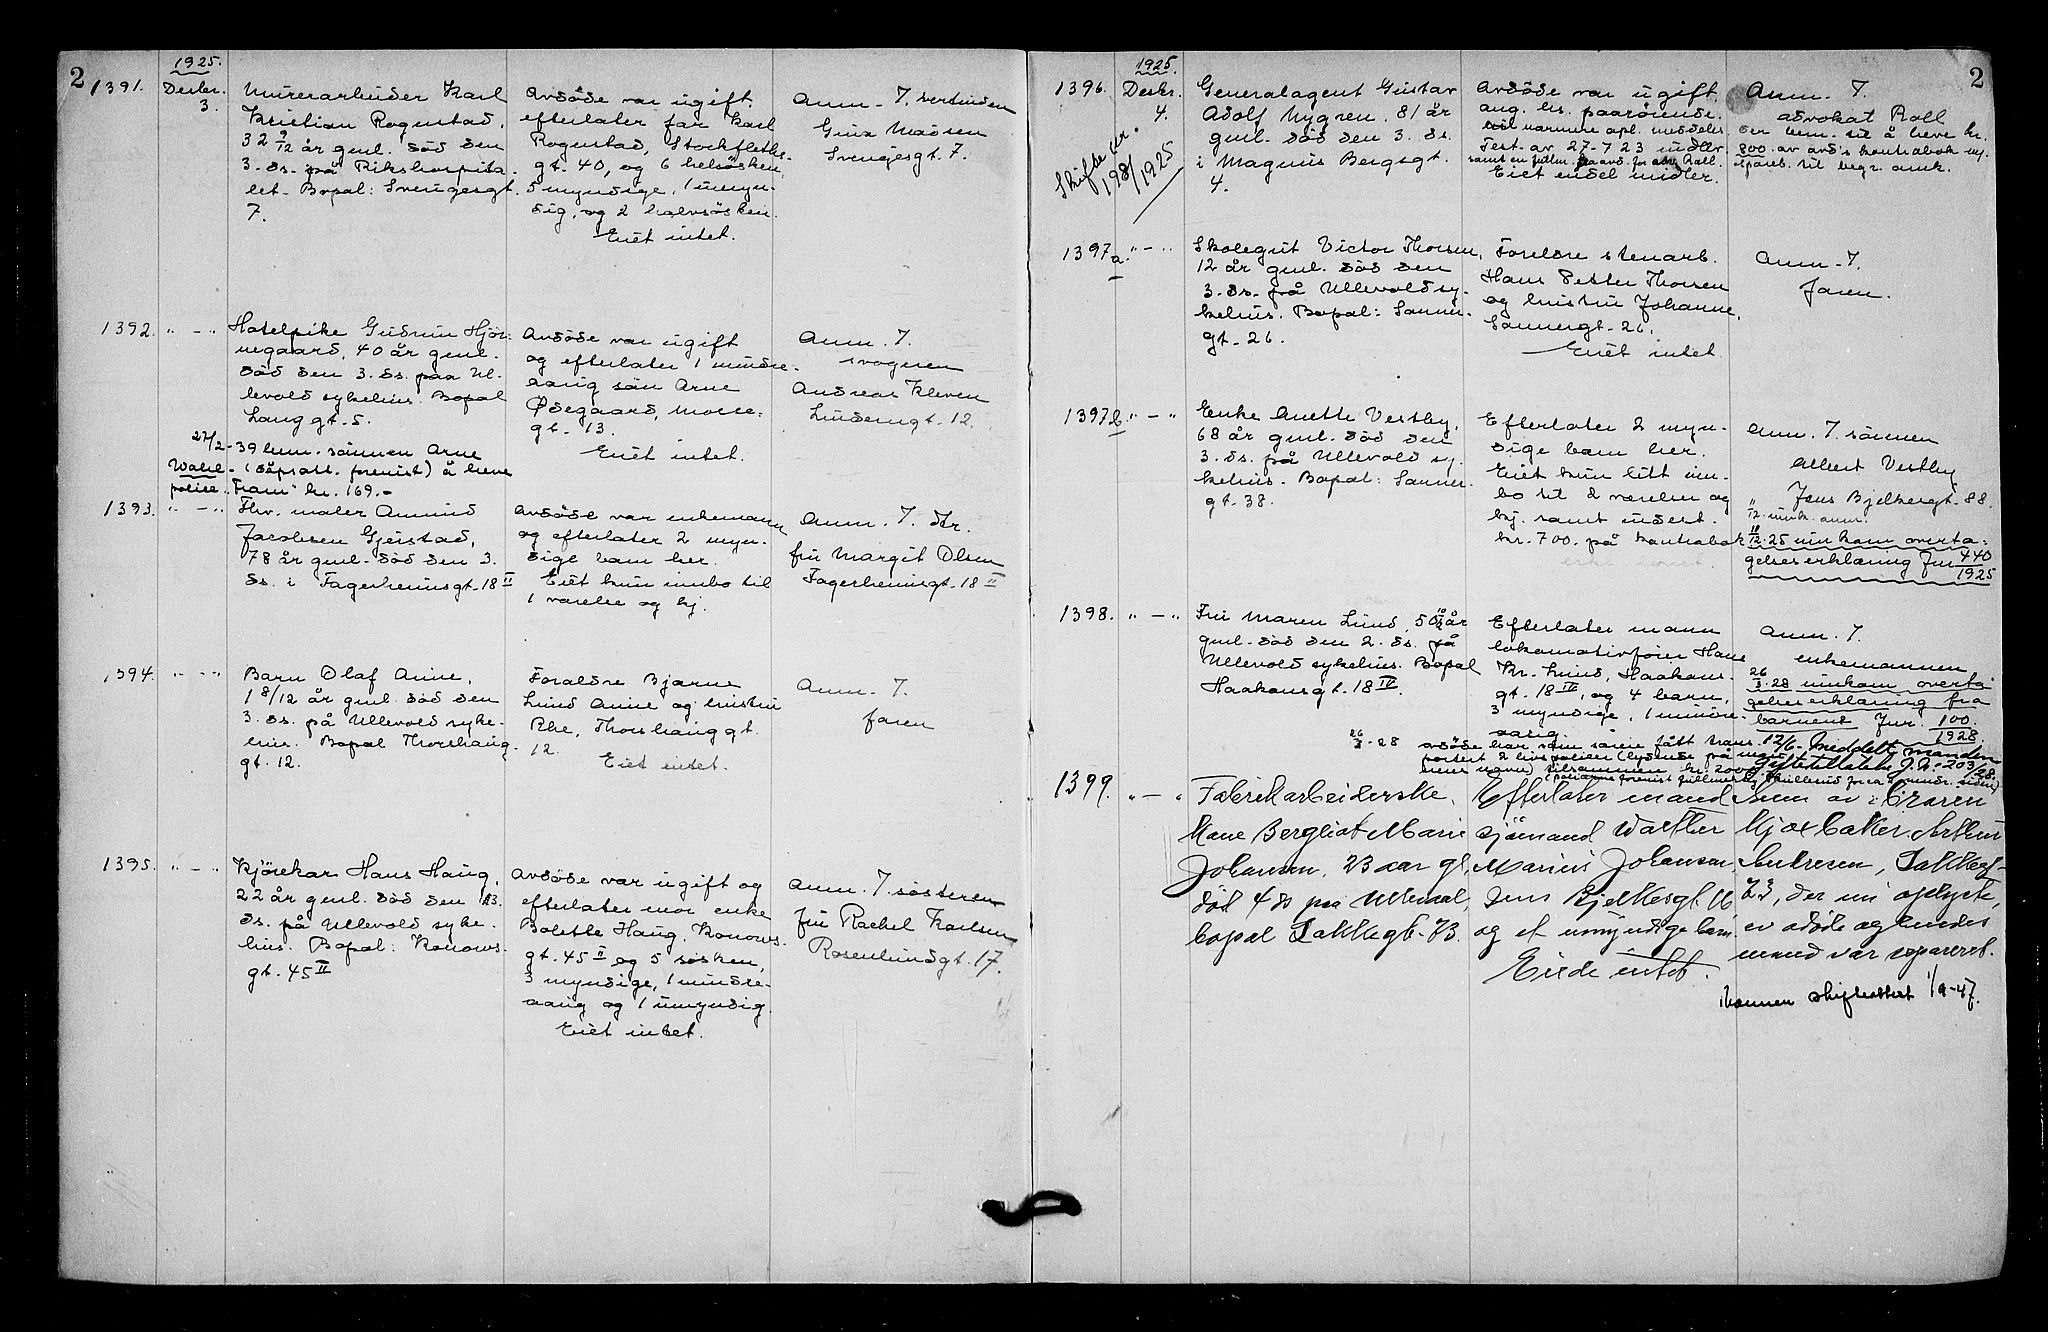 2
1925.
1391.
Desbr.
3.
Murerarbeider Karl
Kristian Rogenstad,
32 9/12 år gml. död den
3. ds. på Rikshospita-
let. Bopal: Sverigesgt.
7.
Avdöde var ugift,
efterlater far Karl
Rogenstad, Stockfleths-
gt. 40, og 6 helsösken,
5 myndige, 1 umyn-
dig, og 2 halvsösken.
Eiet intet.
Anm. 7. vertinden
Gina Madsen
Sverigesgt. 7.
1392.
" - "
Hotelpike Gudrun Hjör-
negaard, 40 år gml.
död den 3. ds. paa Ul-
levold sykehus. Bopal
Langgt. 5.
Avdöde var ugift
og efterlater 1 mindre-
aarig sön Arne
Ødegaard, Mosse-
gt. 13.
Eiet intet.
Anm. 7.
svogeren
Andreas Kleven
Lindemgt. 12.
27/2-39 bem. sönnen Arne
(dåpsatt. forevist) å heve
police "Fram" kr. 169.-
1393.
" - "
Fhv. maler Amund
Jacobsen Gjeistad,
78 år gml. död den 3.
ds. i Fagerheimsgt. 18 II
Avdöde var enkemann
og efterlater 2 myn-
dige barn her.
Eiet kun innbo til
1 værelse og kj.
Anm. 7. dtr.
fru Margit Olsen
Fagerheimsgt. 18 II
1394.
" - "
Barn Olaf Anine,
1 8/12 år gml. död den
3. ds. på Ullevold syke-
hus. Bopal Thorshaug-
gt. 12.
Foreldre Bjarne
Lund Anine og hustru
Rhe, Thorshauggt.
12.
Eiet intet.
Anm. 7.
faren
1395.
" - "
Kjörekar Hans Haug,
22 år gml. död den 3.
ds. på Ullevold syke-
hus. Bopal: Konows-
gt. 45 II
Avdöde var ugift og
efterlater mor enke
Bolette Haug, Konows-
gt. 45 II og 5 sösken,
3 myndige, 1 mindre-
aarig og 1 umyndig.
Eiet intet.
Anm. 7. sösteren
fru Rachel Karlsen
Rosenlundgt. 17.
2
1925.
1396.
Desbr.
4.
Skifte nr.
198/1925
Generalagent Gustav
Adolf Nygren, 81 år
gml. död den 3. ds.
i Magnus Bergsgt.
4.
Avdöde var ugift.
ang. hs. paarörende
vil nærmere opl. meddeles
Test. av 27-7 23 indlev.
Eiet endel midler.
Anm. 7.
advokat Roll
der bem. til å heve kr.
800. av avd's kontrabok
sparеb. til begr. omk.
1397a.
" - "
Skolegut Victor Thorsen,
12 år gml. död den
3. ds. på Ullevold sy-
kehus. Bopal: Sanner-
gt. 26.
Foreldre stenarb.
Hans Petter Thorsen
og hustru Johanne,
Sannergt. 26.
Eiet intet
Anm. 7.
faren.
1397b.
" - "
Enke Anette Vestby,
68 år gml. död den
3. ds. på Ullevold sy-
kehus. Bopal: Sanner-
gt. 38.
Efterlater 2 myn-
dige barn her.
Eiet kun litt inn-
bo til 2 værelser og
kj. samt indest.
kr. 700. på kontrabok
Anm. 7. sönnen
Albert Vestby
Jens Bjelkesgt. 88.
18/12.25 innkom overta-
gelseserklæring Jnr 440
1925
1398.
" - "
Fru Maren Lund, 50 10/12 år
gml. död den 2. ds. på
Ullevold sykehus. Bopal
Haakonsgt. 18 IV.
Efterlater mann
lokomotivförer Hans
Kr. Lund, Haakons-
gt. 18 IV, og 4 barn,
3 myndige, 1 mindre-
aarig.
Anm. 7.
enkemannen
26/3.28 innkom overta-
gelseserklæring fra
barnene Jnr. 100.
1928.
26/3-28 avdöde har som såvie fått trans-
portert 2 livspoliser (lydende på
hennes navn) tilsammen kr. 2000
12/6. Meddelt manden
skiftetillatelse J.nr 203/28.
1399.
" - "
Fabrikarbeiderske,
Kone Bergliot Marie
Johansen, 23 aar gl.,
död 4 ds paa Ullevaal,
bopal Lakkegt. 73.
Efterlater mand
sjömand Walther
Marius Johansen,
Jens Bjelkesgt. 16
og et umyndige barn
Eiede intet.
Anm. av broren
Kjoleaker Arthur
Andresen, Lakkegt-
73, der nu oplyste,
ev. avdöde og hendes
mand var separeret.
Mannen skifteattest 1/9-47.